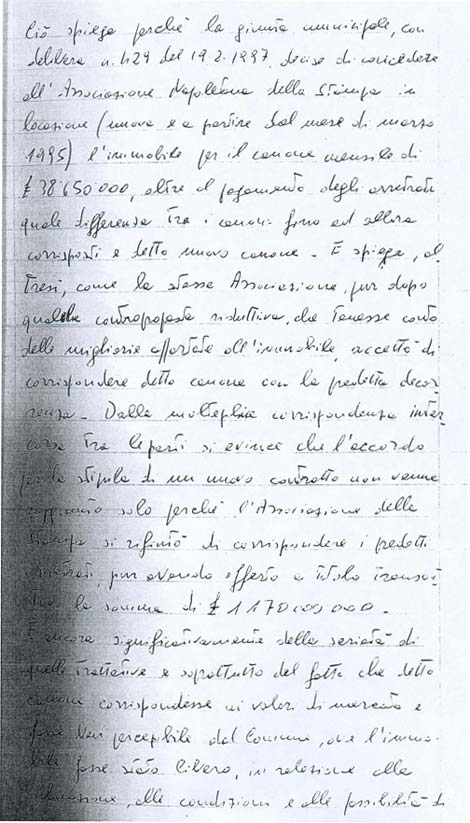 Ciò spiega perché la giunta municipale, con
delibera n. 429 del 19.2.1997, decise di concedere
all'Associazione Napoletana della Stampa in
locazione (nuova e a partire dal mese di marzo
1995) l'immobile per il canone mensile di
£ 38.650.000, oltre al pagamento degli arretrati
quale differenza tra i canoni fino ad allora
corrisposti e detto nuovo canone. E spiega, al
tresì, come la stessa Associazione, pur dopo
qualche controproposta riduttiva, che tenesse conto
delle migliorie apportate all'immobile, accettò di
corrispondere detto canone con la predetta decor
renza. Dalla molteplice corrispondenza inter
corsa tra le parti si evince che l'accordo
per la stipula di un nuovo contratto non venne
raggiunto solo perché l'Associazione della
Stampa si rifiutò di corrispondere i predetti
arretrati, pur avendo offerto a titolo transat
tivo la somma di £ 1.170.000.000.
È ancora significativamente della serietà di
quelle trattative e soprattutto del fatto che detto
canone corrispondesse ai valori di mercato e
fosse ben percepibile dal Comune, ove l'immo
bile fosse stato libero, in relazione alla
alle condizioni e alle possibilità di